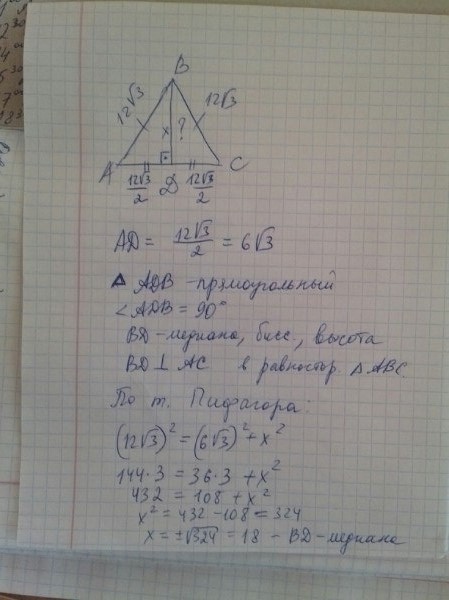 B
12√3
12√3
x ?
A
C
12√3/2
D
12√3/2
AD = 12√3/2 = 6√3
△ ADB - прямоугольный
∠ADB = 90°
BD - медиана, бисс., высота
BD ⊥ AC в равностор. △ABC
По т. Пифагора:
(12√3)² = (6√3)² + x²
144·3 = 36·3 + x²
432 = 108 + x²
x² = 432 - 108 = 324
x = ±√324 = 18 - BD - медиана